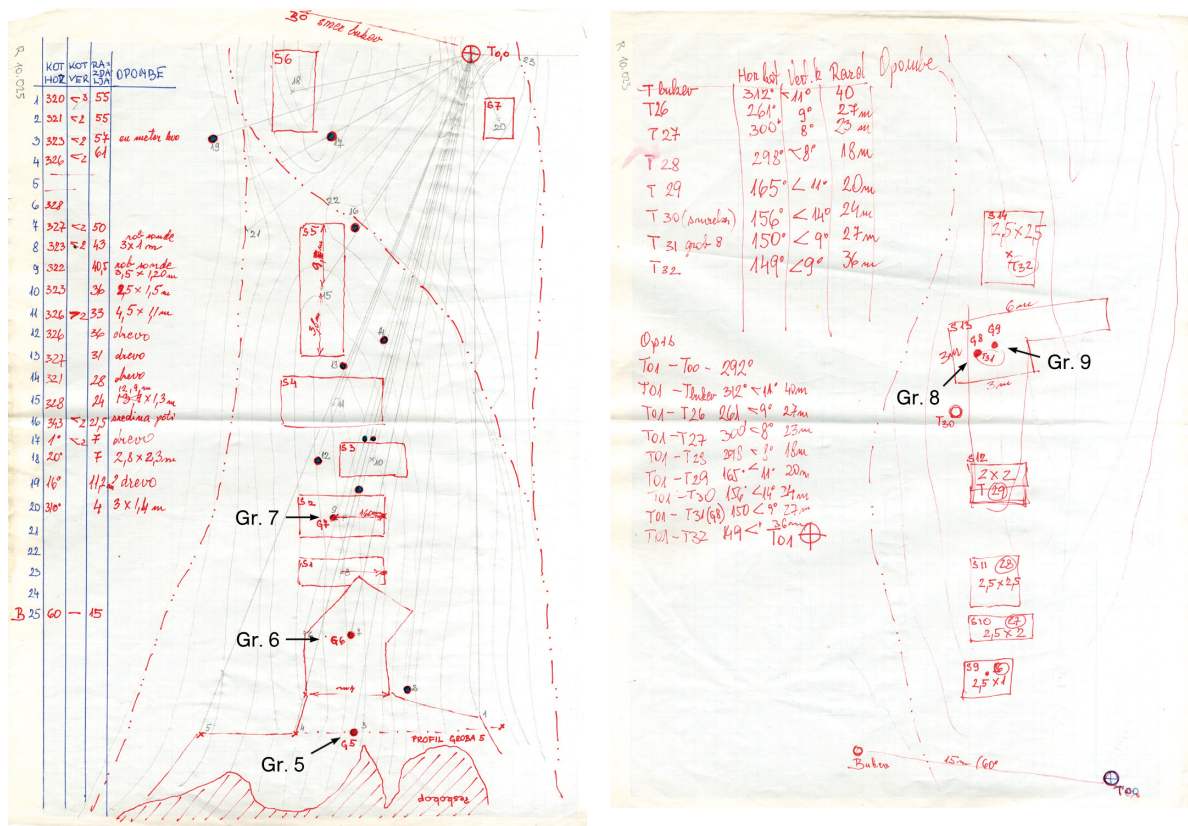 R 10.025
B0 smer bukev
T0,0
KOT HOR KOT VER RAZDALJA OPOMBE
1 320 <3 55
2 321 <2 55
3 323 <2 57 en meter levo
4 326 <2 61
5
6 328
7 327 <2 50
8 323 <2 43 rob sonde 3x1m
9 322 40,5 rob sonde 3,5 x 1,20m
10 323 36 2,5 x 1,5m
11 326 >2 33 4,5 x 1/m
12 326 36 drevo
13 327 31 drevo
14 321 28 drevo
15 328 24
16 343 <2 21,5 sredina poti
17 1° <2 7 drevo
18 20° 7 2,8 x 2,3m
19 16° 11,2 2 drevo
20 310° 4 3 x 1,4m
21
22
23
24
B 25 60 — 15
S6
18
23
S7
20
19
17
22
16
21
S5
15
13
S4
S3
10
12
S2
9
G7
Gr. 7
S1
8
Gr. 6
G6
7
5
4
3
1
G5
PROFIL GROBA 5
Gr. 5
R 10.025
Hor kot Vert. k Razd Opombe
T bukev 312° <11° 40
T26 261° 9° 27m
T27 300° 8° 23m
T28 298° <8° 18m
T29 165° <11° 20m
T30 (smreka) 156° <14° 24m
T31 grob 8 150° <9° 27m
T32 149° <9° 36m
Opis
T01 – T00 – 292°
T01 – T bukev 312° <11° 40m
T01 – T26 261 <9° 27m
T01 – T27 300 <8° 23m
T01 – T28 298 <8° 18m
T01 – T29 165° <11° 20m
T01 – T30 156° <14° 24m
T01 – T31 (G8) 150 <9° 27m
T01 – T32 149 <° 36m
T01
S14
2,5 x 2,5
x
T32
6m
S13
G8 G9
T31
3m
3m
Gr. 8
Gr. 9
T30
S12
2 x 2
T 29
S11 28
2,5 x 2,5
S10 27
2,5 x 2
S9 26
2,5 x 1
Bukev
15m/60°
T00